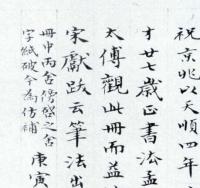 祝京兆以天順四年
才廿七歲正書法孟
太傅觀此冊而益
家獻跋云筆法出
冊中丙舍傍祭之舍
字紙破今為仿補
庚寅